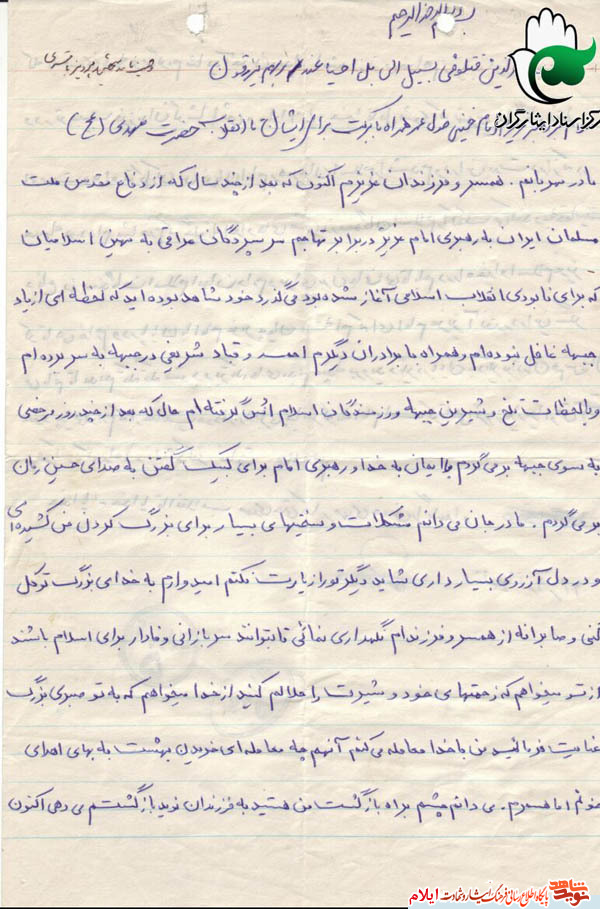 بسم الله الرحمن الرحیم
قتلوا فی سبیل الله بل احیا عند ربهم یرزقون
وصیت نامه شهید
مرکز اسناد ایثارگران
امام خمینی طول عمر همراه با برکت برای ایشان تا انقلاب حضرت مهدی (عج)
مادر مهربانم . همسر و فرزندان عزیزم اکنون که بعد از چند سال که از دفاع مقدس ملت
مسلمان ایران به رهبری امام عزیز در برابر تهاجم سر سپردگان عراقی به میهن اسلامیمان
که برای نابودی انقلاب اسلامی آغاز شده بود می گذرد خود شاهد بوده اید که لحظه ای از یاد
جبهه غافل نبوده ام و همراه با برادران دیگرم احمد و قباد شریفی در جبهه به سر برده ام
و با لحظات تلخ و شیرین جبهه و رزمندگان اسلام انس گرفته ام حال که بعد از چند روز مرخصی
به سوی جبهه بر می گردم با ایمان به خدا و رهبری امام برای لبیک گفتن به صدای حسین زمان
بر می گردم . مادر جان می دانم مشکلات و سختیهای بسیار برای بزرگ کردن من کشیده ای
و در دل آرزوی بسیار داری شاید دیگر تو را زیارت نکنم امیدوارم به خدای بزرگ توکل
کنی و صابرانه از همسر و فرزندانم نگهداری نمائی تا بتوانند سربازانی وفادار برای اسلام باشند
از تو میخواهم که زحمتهای خود و شیرت را حلالم کنید از خدا میخواهم که به تو صبری بزرگ
عنایت فرمائید من با خدا معامله می کنم آنهم چه معامله ای خریدن بهشت به بهای اهدای
خونم اما همسرم . می دانم چشم براه بازگشت من هستید به فرزندان نوید بازگشتم می دهی اکنون
نوید شاهد
پایگاه اطلاع رسانی فرهنگ ایثار و شهادت ایلام